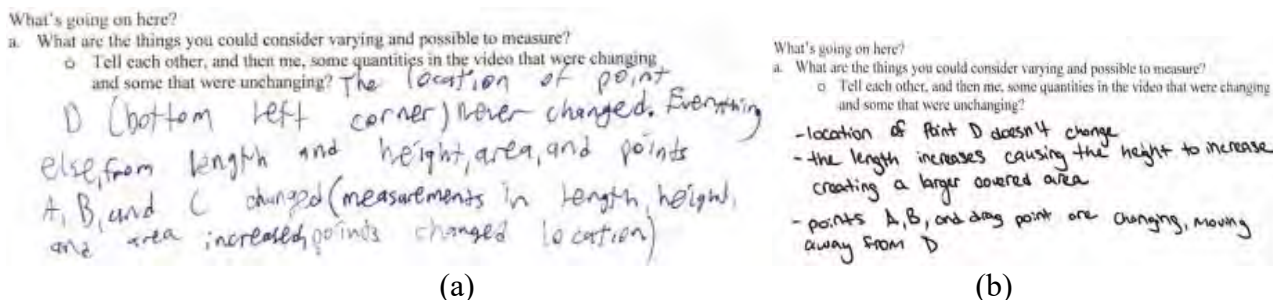 What's going on here?
a. What are the things you could consider varying and possible to measure?
o Tell each other, and then me, some quantities in the video that were changing
and some that were unchanging? The location of point
D (bottom left corner) never changed. Everything
else, from length and height, area, and points
A, B, and C changed (measurements in length, height,
and area increased, points changed location)
(a)
What's going on here?
a. What are the things you could consider varying and possible to measure?
o Tell each other, and then me, some quantities in the video that were changing
and some that were unchanging?
- location of Point D doesn't change
- the length increases causing the height to increase
creating a larger covered area
- points A, B, and drag point are changing, moving
away from D
(b)